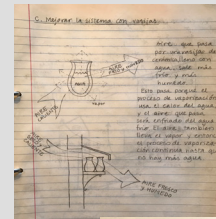 C. Mejorar la sistema con vasijas.
Aire que pasa
por una vasija de
con agua
agua, sale más
fría, y más
humedad.
Esto pasa porqué el
proceso de vaporización
usa el calor del agua,
y el aire que pasa
será enfriado del agua
fría. El aire también
lleva el vapor, y entonces
el proceso de vaporización
continúa hasta que
no hay más agua.
AIRE
CALIENTE
AIRE
FRÍO Y HÚMEDO
AGUA
vapor
AIRE FRESCO
Y HÚMEDO